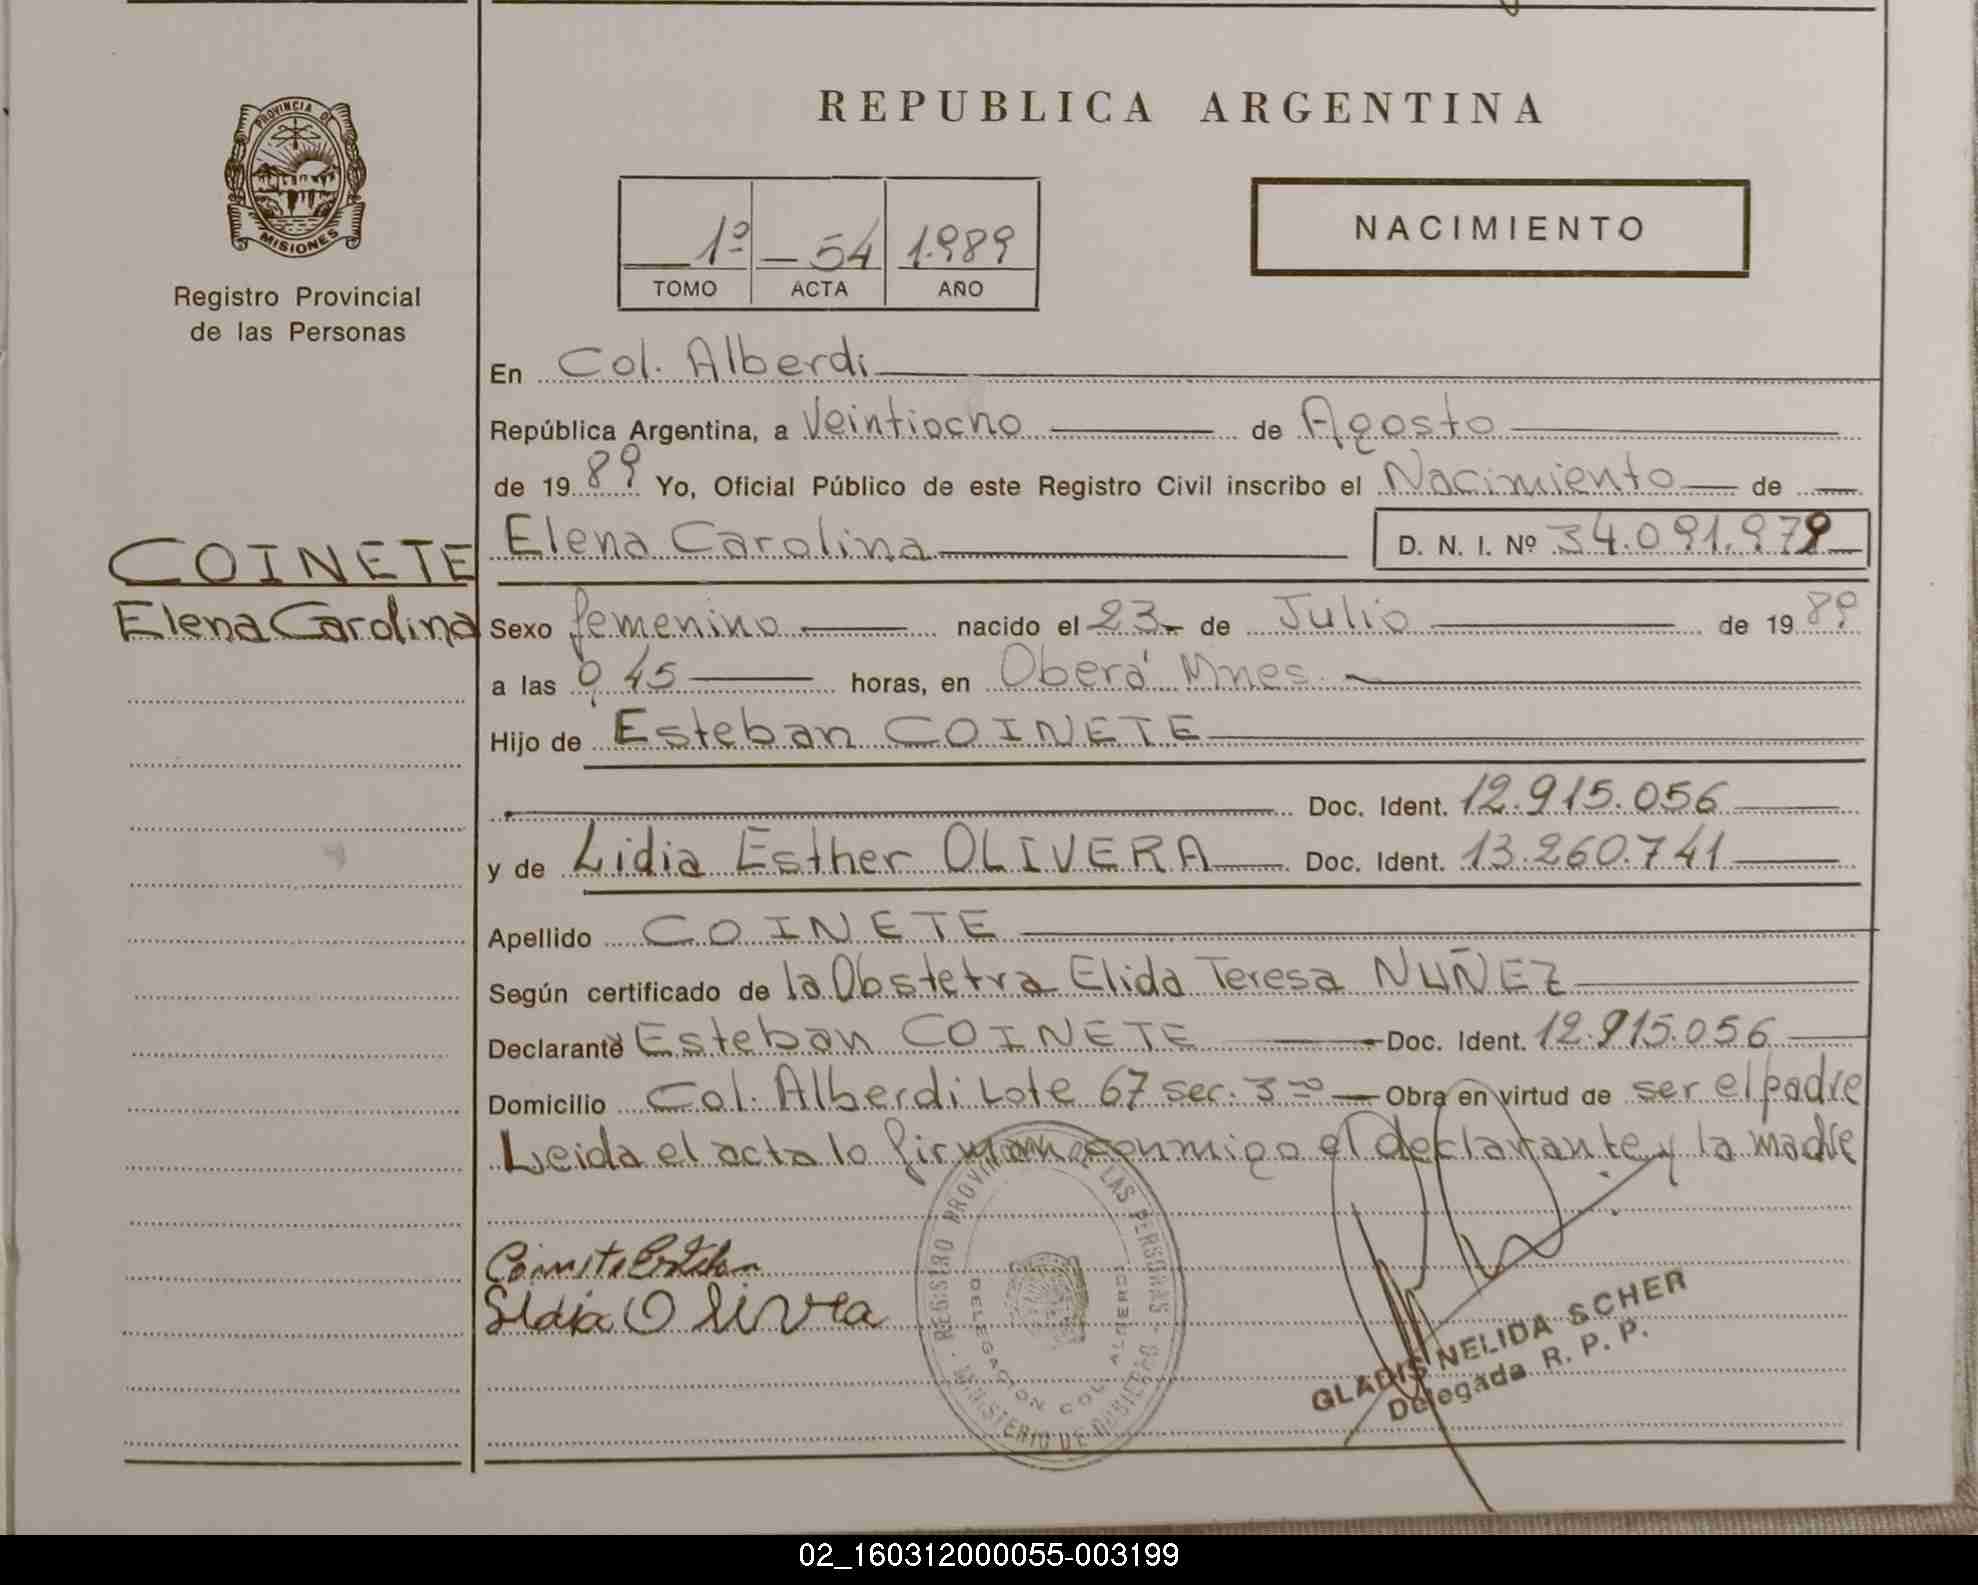 REPUBLICA ARGENTINA
PROVINCIA DE
MISIONES
Registro Provincial
de las Personas
NACIMIENTO
1º 54 1.989
TOMO ACTA AÑO
En Col. Alberdi
República Argentina, a Veintiocho de Agosto
de 19 89 Yo, Oficial Público de este Registro Civil inscribo el Nacimiento de
COINETE
Elena Carolina
Elena Carolina D. N. I. Nº 34.091.979
Sexo femenino nacido el 23 de Julio de 19 89
a las 0,45 horas, en Oberá Mnes.
Hijo de Esteban COINETE
Doc. Ident. 12.915.056
y de Lidia Esther OLIVERA Doc. Ident. 13.260.741
Apellido COINETE
Según certificado de la Obstetra Elida Teresa NUÑEZ
Declarante Esteban COINETE Doc. Ident. 12.915.056
Domicilio Col. Alberdi Lote 67 sec. 3 Obra en virtud de ser el padre
Leida el acta lo firman conmigo el declarante y la madre
REGISTRO PROVINCIAL DE LAS PERSONAS
DELEGACION COL. ALBERDI
MINISTERIO DE GOBIERNO
GLADIS NELIDA SCHER
Delegada R. P. P.
02_160312000055-003199